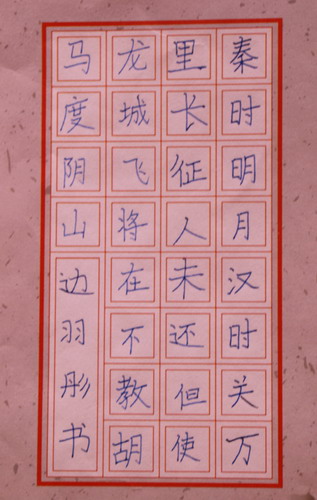 秦时明月汉时关万
里长征人未还但使
龙城飞将在不教胡
马度阴山边羽彤书